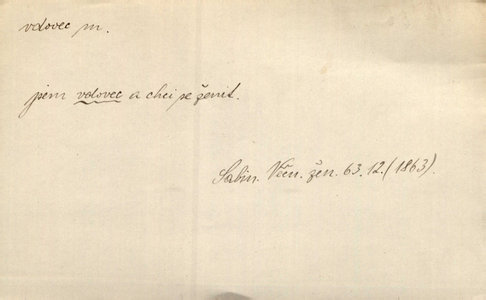 vdovec m.
jsem vdovec a chci se ženit.
Sabin. Věn. žen. 63.12.(1863).